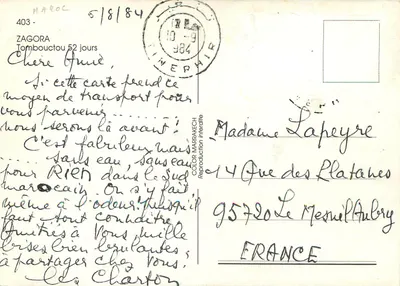 MAROC
403 -
5/8/84
ZAGORA
Tombouctou 52 jours
10 -9
984
TINERHIR
Chère Annie,
Si cette carte prend ce
moyen de transport pour
vous parvenir ..........
nous serons là avant!
C'est fabuleux mais
..... sans eau, sans eau
pour RIEN dans le Sud
marocain. On s'y fait
même à l'odeur puisqu'il
faut tout connaître.
Amitiés à Vous mille
bises bien brulantes,
à partager chez Vous.
les Charton
COLOR MARRAKECH
Reproduction interdite
Madame Lapeyre
14 Rue des Platanes
95720 Le Mesnil Aubry
FRANCE